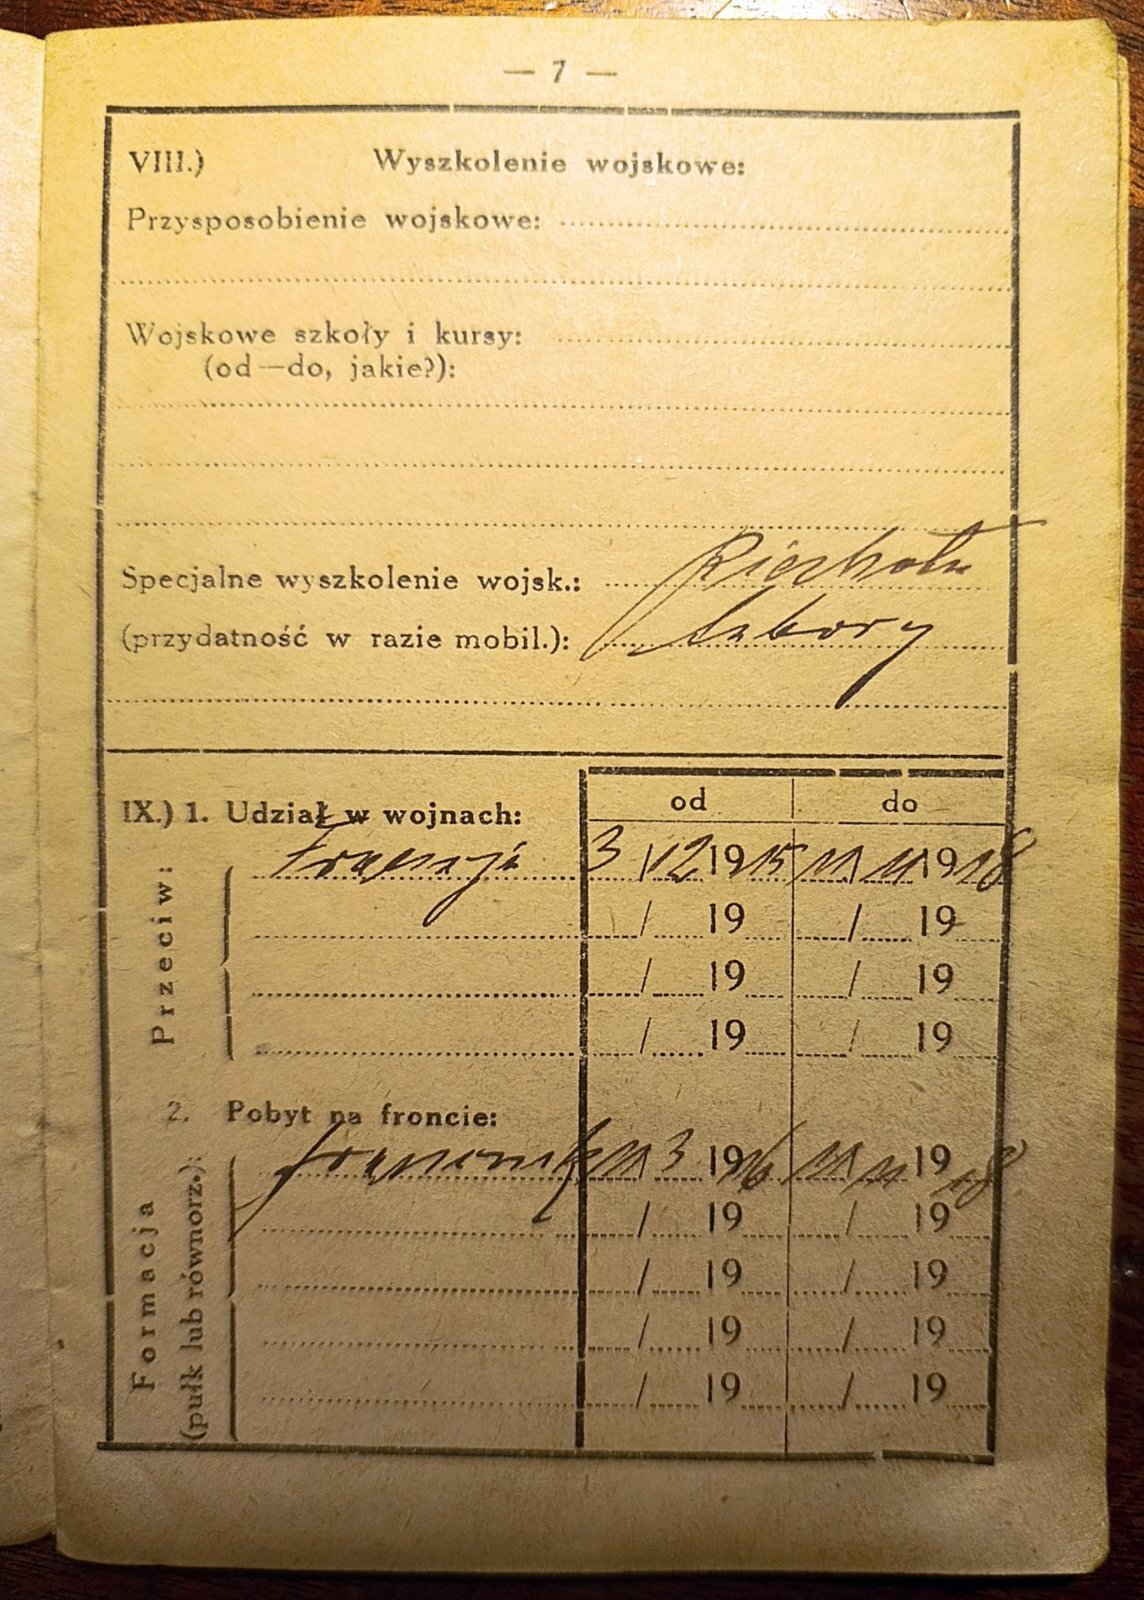 — 7 —
VIII.) Wyszkolenie wojskowe:
Przysposobienie wojskowe:
Wojskowe szkoły i kursy:
(od—do, jakie?):
Specjalne wyszkolenie wojsk.:
(przydatność w razie mobil.): taborу
IX.) 1. Udział w wojnach: od do
Przeciw:
Francja 3/12 1915 11/11 1918
/ 19 / 19
/ 19 / 19
/ 19 / 19
2. Pobyt na froncie:
Formacja
(pułk lub równorz.):
11/3 1916 11/11 1918
/ 19 / 19
/ 19 / 19
/ 19 / 19
/ 19 / 19